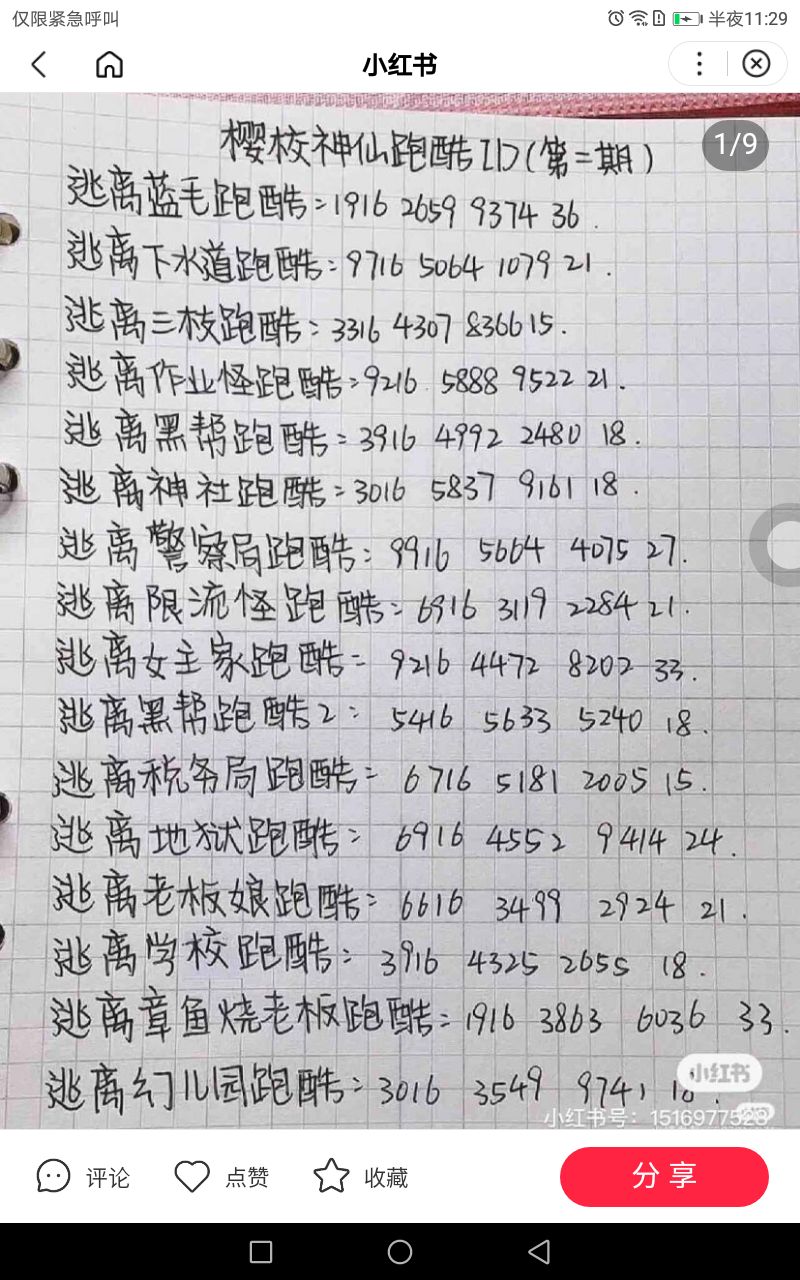 仅限紧急呼叫 半夜11:29
小红书
1/9
樱校神仙跑酷ID(第二期)
逃离蓝毛跑酷:1916 2659 9374 36.
逃离下水道跑酷:9716 5064 1079 21.
逃离三枝跑酷:3316 4307 8366 15.
逃离作业怪跑酷:9216 5888 9522 21.
逃离黑帮跑酷:3916 4992 2480 18.
逃离神社跑酷:3016 5837 9161 18.
逃离警察局跑酷:9916 5664 4075 27.
逃离限流怪跑酷:6916 3119 2284 21.
逃离女主家跑酷:9216 4472 8202 33.
逃离黑帮跑酷2:5416 5633 5240 18.
逃离税务局跑酷:6716 5181 2005 15.
逃离地狱跑酷:6916 4552 9414 24.
逃离老板娘跑酷:6616 3499 2924 21.
逃离学校跑酷:3916 4325 2655 18.
逃离章鱼烧老板跑酷:1916 3863 6036 33.
逃离幻儿园跑酷:3016 3549 9741 18.
小红书
小红书号:1516977528
评论 点赞 收藏 分享